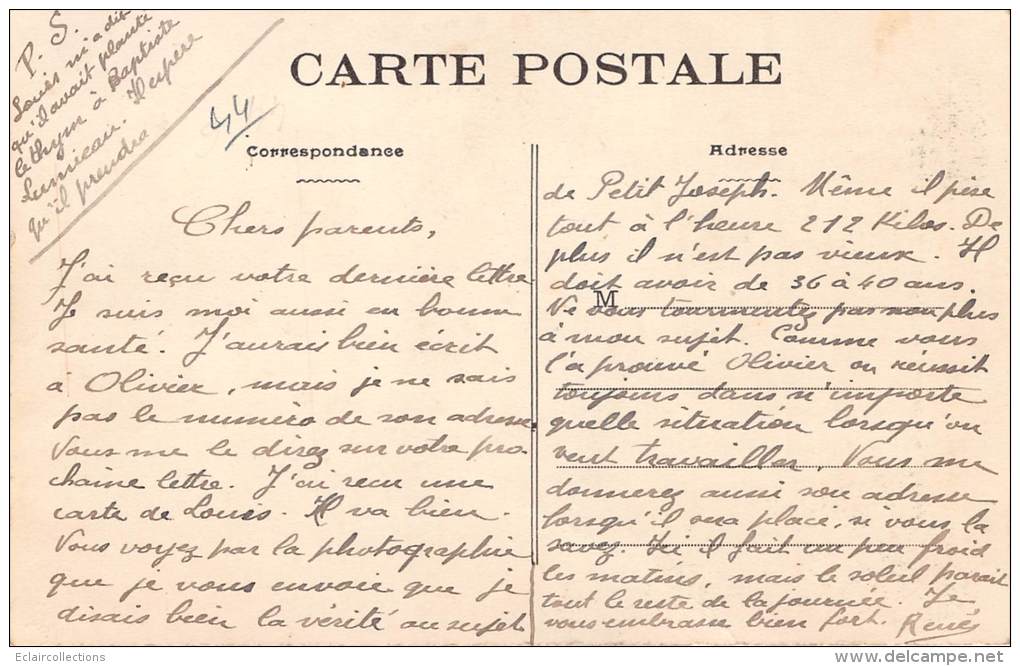 P. S.
Louis m'a dit
qu'il avait planté
le thym à Baptiste
Lumieau. Il espère
qu'il prendra
CARTE POSTALE
44
Correspondance
Chers parents,
J'ai reçu votre dernière lettre
Je suis moi aussi en bonne
santé. J'aurais bien écrit
à Olivier, mais je ne sais
pas le numéro de son adresse.
Vous me le direz sur votre pro
chaine lettre. J'ai reçu une
carte de Louis. Il va bien.
Vous voyez par la photographie
que je vous envoie que je
disais bien la vérité au sujet
Adresse
M
de Petit Joseph. Même il pèse
tout à l'heure 212 Kilos. De
plus il n'est pas vieux. Il
doit avoir de 36 à 40 ans.
Ne vous tourmentez pas non plus
à mon sujet. Comme vous
l'a prouvé Olivier on réussit
toujours dans n'importe
quelle situation lorsqu'on
veut travailler. Vous me
donnerez aussi son adresse
lorsqu'il sera placé, si vous la
savez. Ici il fait un peu froid
les matins, mais le soleil parait
tout le reste de la journée. Je
vous embrasse bien fort. René
Eclaircollections